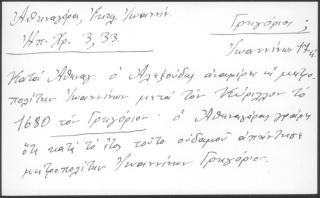 Ἀθηναγόρας, Ἐκκλ. Ἰωαννίν.
Γρηγόριος ;
Ἠπ. Χρ. 3, 33.
Ἰωαννίνων
Κατὰ Ἀθηναγ. ὁ Ἀλεξούδης ἀναφέρει ὡς μητρο-
πολίτην Ἰωαννίνων μετὰ τὸν Κύριλλον τὸ
1680 τὸν Γρηγόριον · ὁ Ἀθηναγόρας γράφει
ὅτι κατὰ τὸ ἔτος τοῦτο οὐδαμοῦ ἀπήντησε
μητροπολίτην Ἰωαννίνων Γρηγόριον.